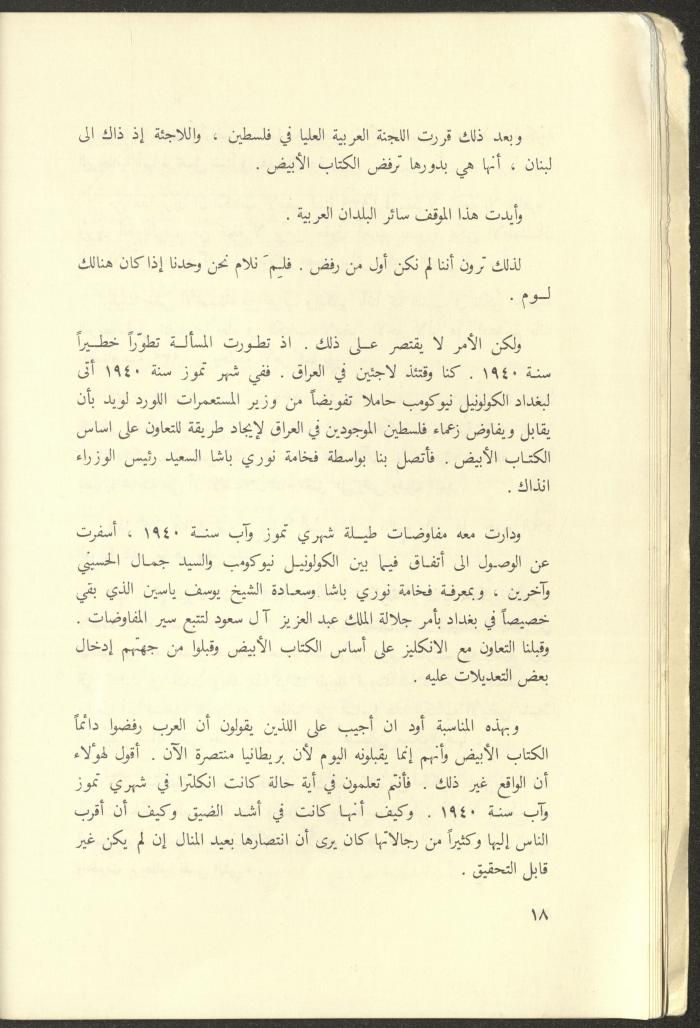 وبعد ذلك قررت اللجنة العربية العليا في فلسطين ، واللاجئة إذ ذاك الى
لبنان ، أنها هي بدورها ترفض الكتاب الأبيض .
وأيدت هذا الموقف سائر البلدان العربية .
لذلك ترون أننا لم نكن أول من رفض . فلِمَ نلام نحن وحدنا إذا كان هنالك
لـوم .
ولكن الأمر لا يقتصر عـلى ذلك . اذ تطـورت المسألـة تطوّراً خطـيراً
سنـة ١٩٤٠ . كنا وقتئذ لاجئين في العراق . ففي شهر تموز سنة ١٩٤٠ أتى
لبغداد الكولونيل نيوكومب حاملا تفويضاً من وزير المستعمرات اللورد لويد بأن
يقابل ويفاوض زعماء فلسطين الموجودين في العراق لإيجاد طريقة للتعاون على اساس
الكتـاب الأبيض . فأتصل بنا بواسطة فخامة نوري باشا السعيد رئيس الوزراء
انذاك .
ودارت معه مفاوضـات طيـلة شهري تموز وآب سنـة ١٩٤٠ ، أسفرت
عن الوصـول الى أتفـاق فيـما بين الكولونيـل نيوكومب والسيد جمـال الحسيني
وآخرين ، وبمعرفـة فخامة نوري باشا وسعـادة الشيخ يوسف ياسين الذي بقي
خصيصاً في بغداد بأمر جلالة الملك عبد العزيز آل سعود لتتبع سير المفاوضات .
وقبلنا التعاون مع الانكليز على أساس الكتاب الأبيض وقبلوا من جهتهم إدخال
بعض التعديلات عليه .
وبهذه المناسبة أود ان أجيب على اللذين يقولون أن العرب رفضوا دائماً
الكتاب الأبيض وأنهم إنما يقبلونه اليوم لأن بريطانيا منتصرة الآن . أقول لهؤلاء
أن الواقع غير ذلك . فأنتم تعلمون في أية حالة كانت انكلترا في شهري تموز
وآب سنـة ١٩٤٠ . وكيف أنهـا كانت في أشـد الضيق وكيف أن أقرب
الناس إليها وكثيراً من رجالاتها كان يرى أن انتصارها بعيد المنال إن لم يكن غير
قابل التحقيق .
١٨